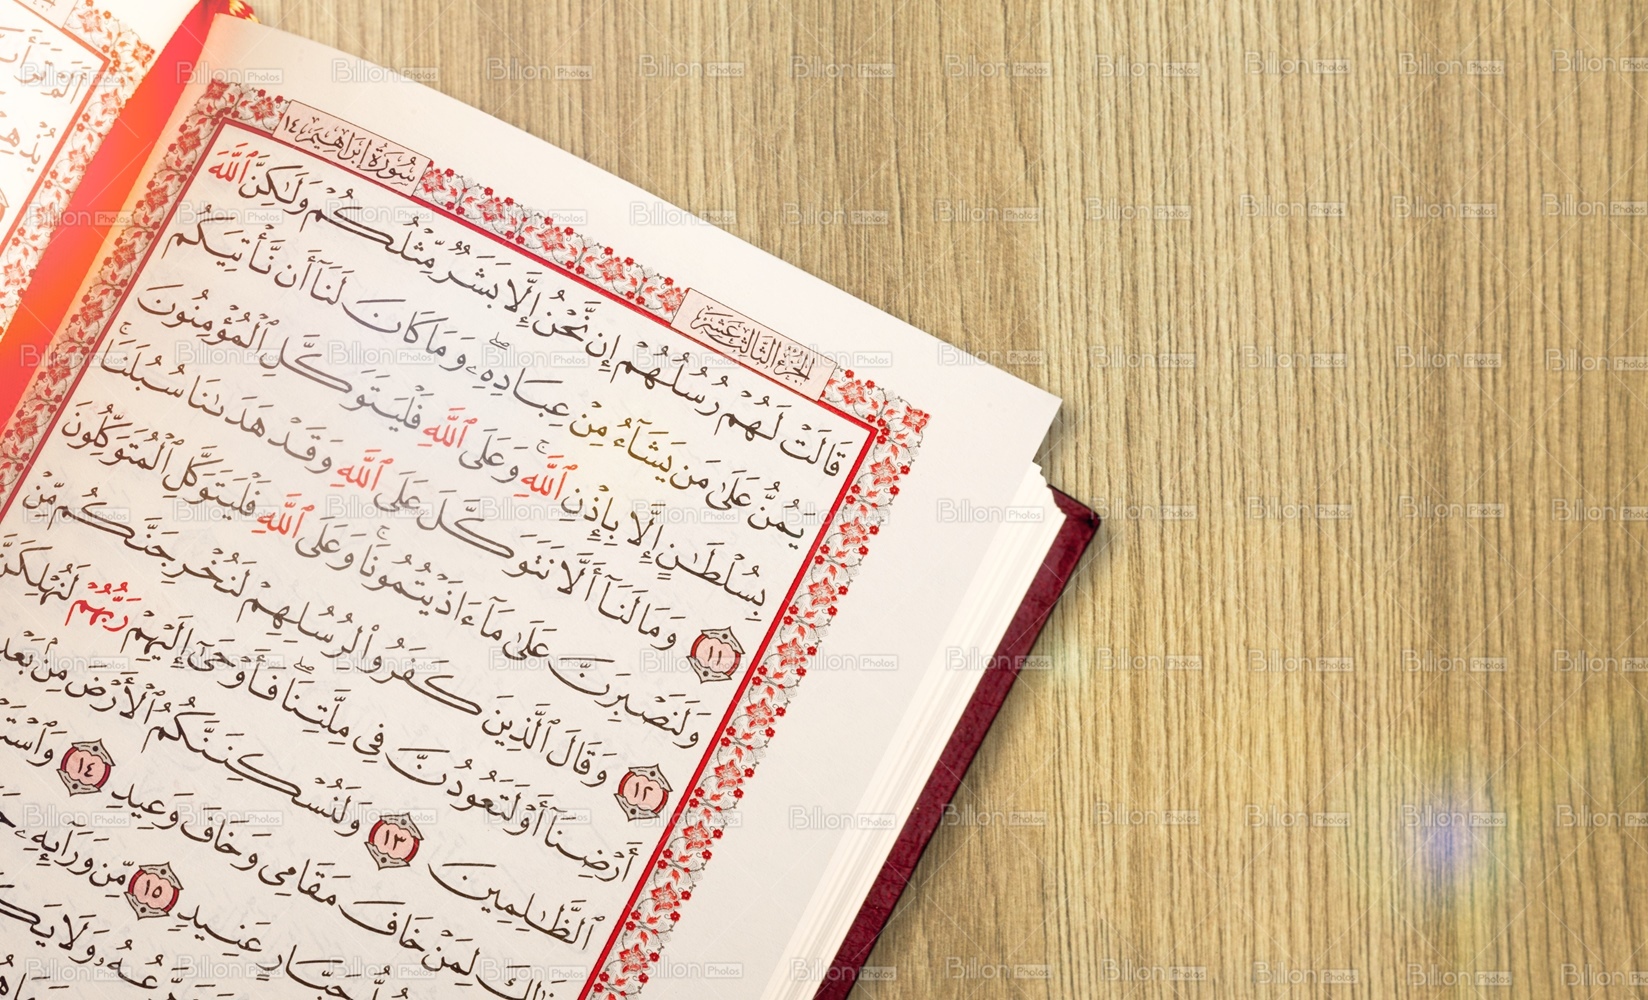 سُورَةُ إِبْرَاهِيمَ ١٤
الجُزْءُ الثَّالِثَ عَشَرَ
قَالَتْ لَهُمْ رُسُلُهُمْ إِن نَّحْنُ إِلَّا بَشَرٌ مِّثْلُكُمْ وَلَٰكِنَّ ٱللَّهَ
يَمُنُّ عَلَىٰ مَن يَشَآءُ مِنْ عِبَادِهِۦ ۖ وَمَا كَانَ لَنَآ أَن نَّأْتِيَكُم
بِسُلْطَٰنٍ إِلَّا بِإِذْنِ ٱللَّهِ ۚ وَعَلَى ٱللَّهِ فَلْيَتَوَكَّلِ ٱلْمُؤْمِنُونَ
١١ وَمَا لَنَآ أَلَّا نَتَوَكَّلَ عَلَى ٱللَّهِ وَقَدْ هَدَىٰنَا سُبُلَنَا ۚ
وَلَنَصْبِرَنَّ عَلَىٰ مَآ ءَاذَيْتُمُونَا ۚ وَعَلَى ٱللَّهِ فَلْيَتَوَكَّلِ ٱلْمُتَوَكِّلُونَ
١٢ وَقَالَ ٱلَّذِينَ كَفَرُوا۟ لِرُسُلِهِمْ لَنُخْرِجَنَّكُم مِّنْ
أَرْضِنَآ أَوْ لَتَعُودُنَّ فِى مِلَّتِنَا ۖ فَأَوْحَىٰٓ إِلَيْهِمْ رَبُّهُمْ لَنُهْلِكَنَّ
ٱلظَّٰلِمِينَ ١٣ وَلَنُسْكِنَنَّكُمُ ٱلْأَرْضَ مِنۢ بَعْدِ
لِمَنْ خَافَ مَقَامِى وَخَافَ وَعِيدِ ١٤
جَبَّارٍ عَنِيدٍ ١٥ مِّن وَرَآئِهِۦ
وَلَا
Billion Photos